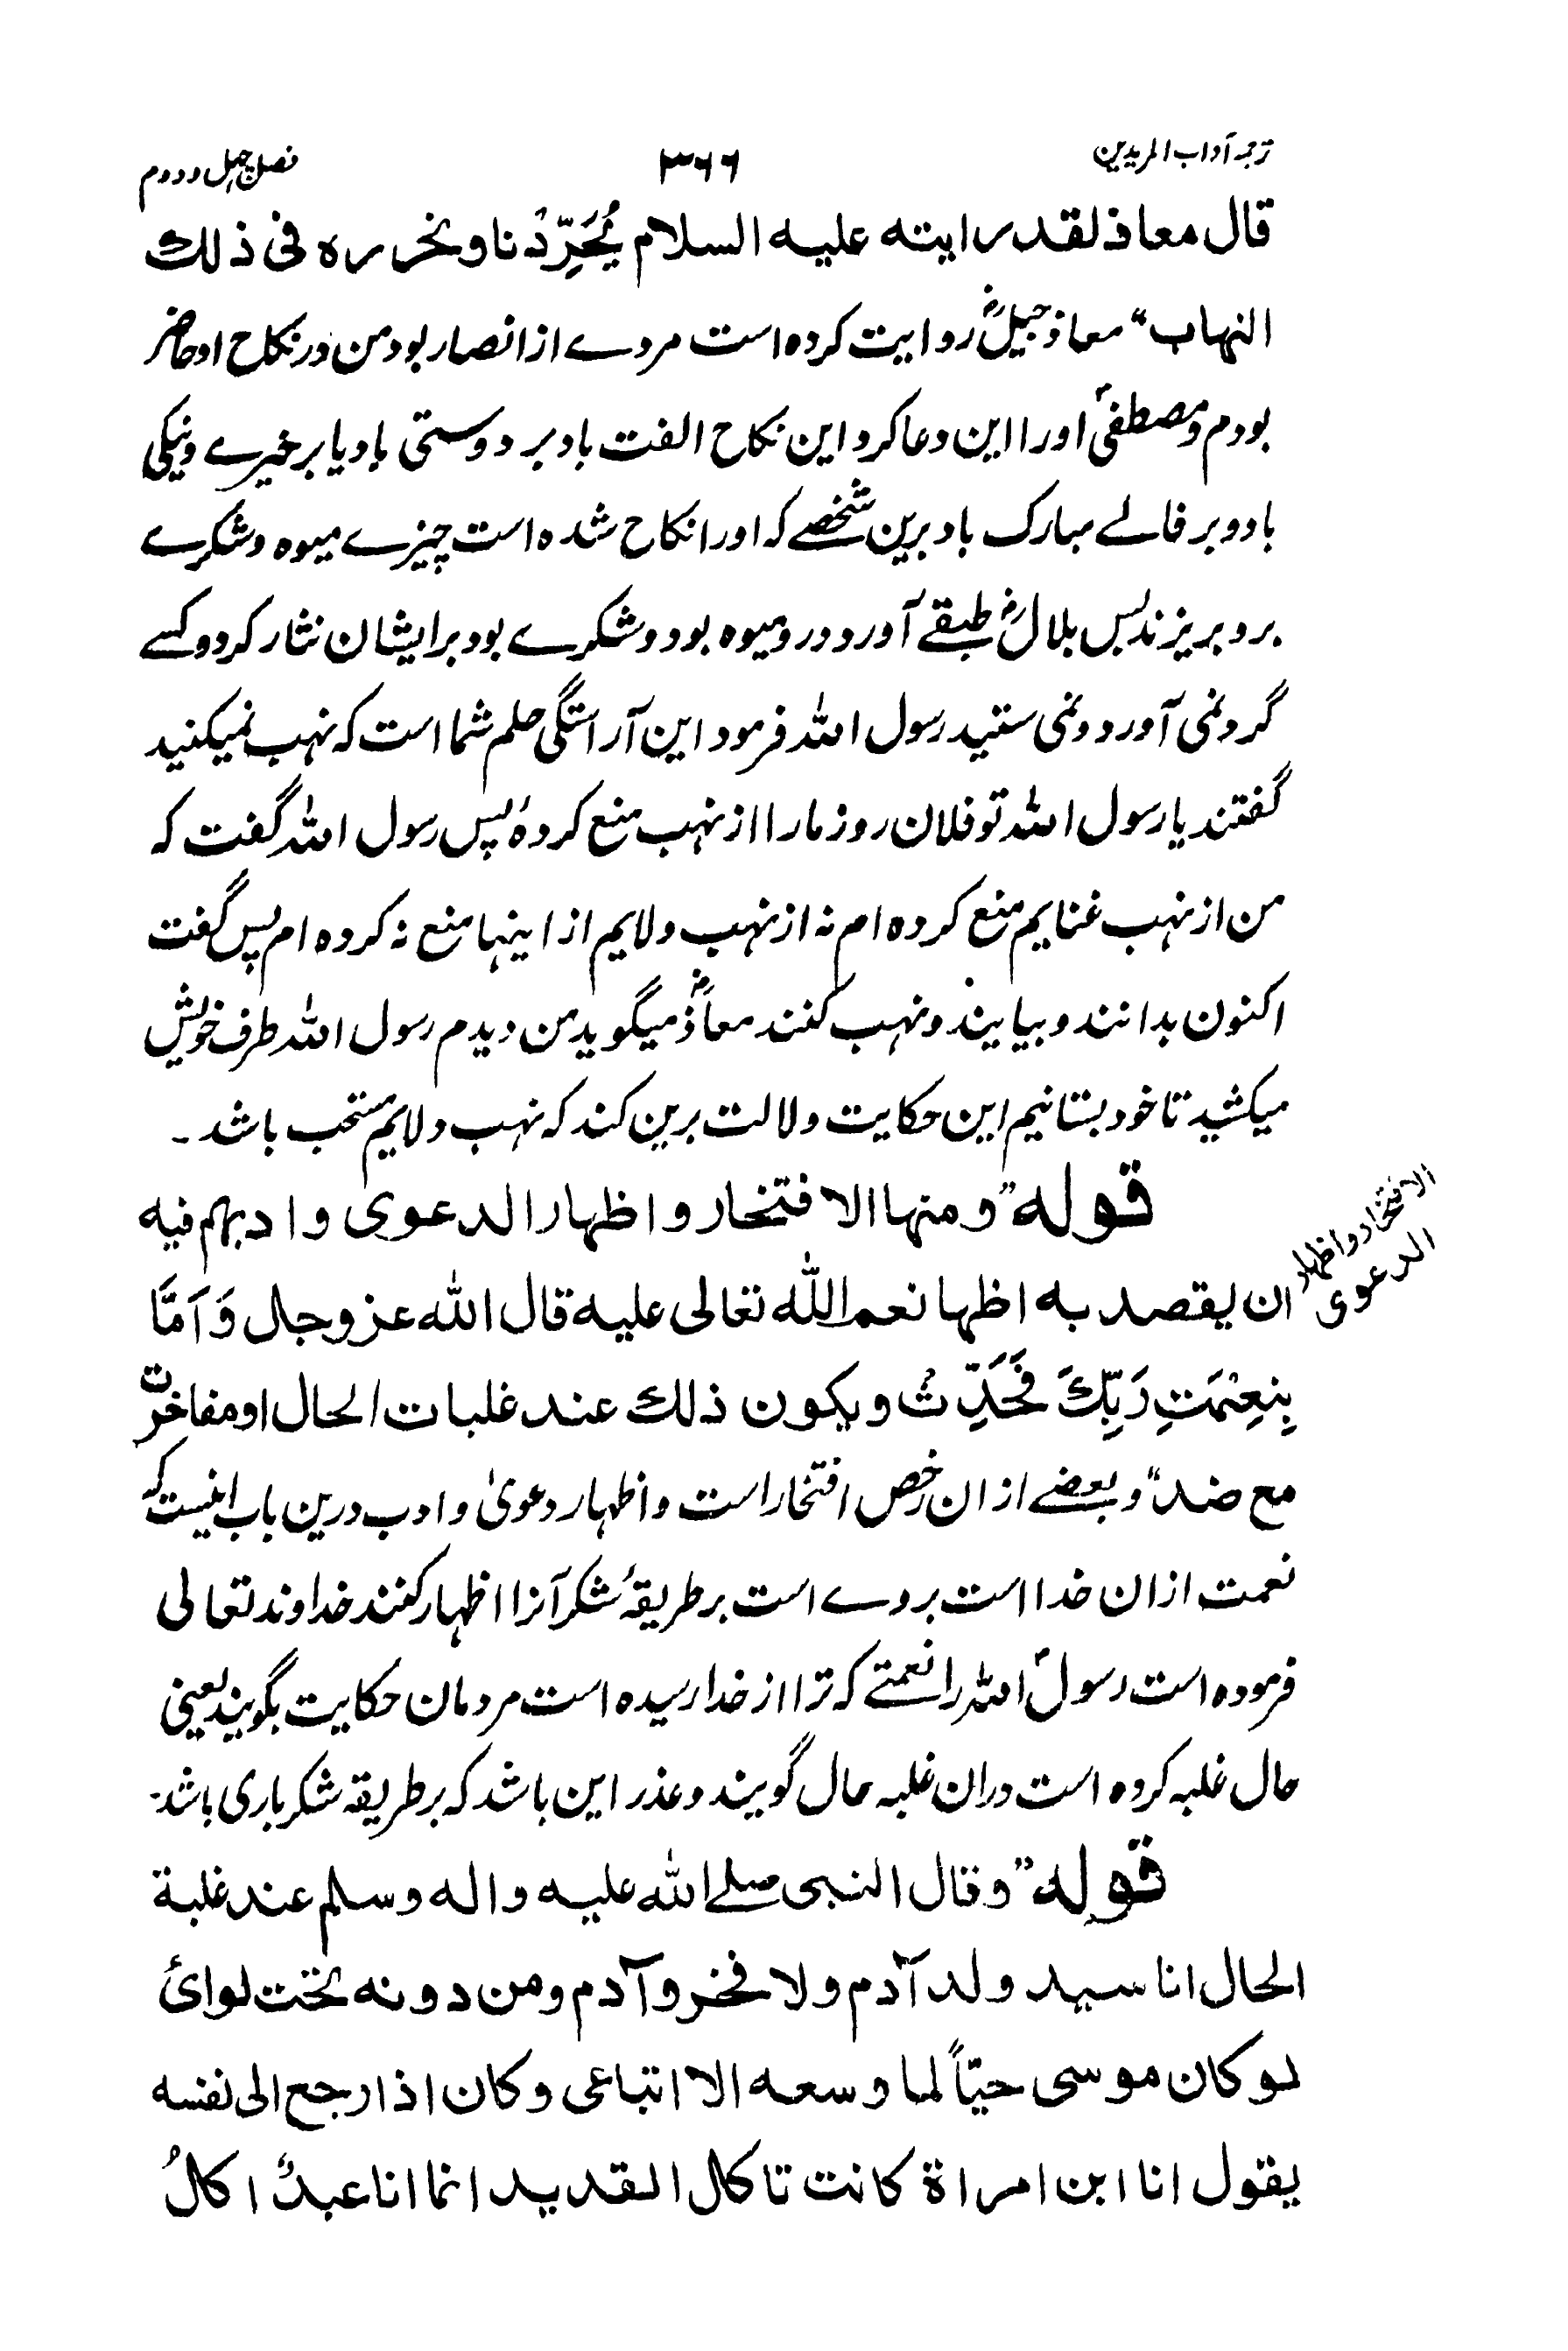 ترجمہ آداب المریدین ۳۶۶ فصل چہل و دوم
قال معاذ لقد رایته علیه السلام یُجَرِّدُنا ونخرره فی ذلك
النهاب“ معاذ جبلؓ روایت کرده است مردے از انصار بود من در نکاح او حاضر
بودم و مصطفیؐ اورا این دعا کرد این نکاح الفت باد بر دوستی باد یا بر خیرے و نیکی
باد و بر فالے مبارک باد برین شخصے که اورا نکاح شده است چیزے میوه و شکرے
برو بریزند پس بلالؓ طبقے آورد در و میوه بود و شکرے بود بر ایشان نثار کرد و کسے
گرد نمی آورد و نمی ستنید رسول الله فرمود این آراستگی حلم شما است که نهب نمیکنید
گفتند یا رسول الله تو فلان روز مارا از نهب منع کردۂ پس رسول الله گفت که
من از نهب غنایم منع کرده ام نه از نهب ولایم از اینها منع نه کرده ام پس گفت
اکنون بدانند و بیایند و نهب کنند معاذؓ میگوید من دیدم رسول الله طرف خویش
میکشید تا خود بستانیم این حکایت دلالت برین کند که نهب ولایم مستحب باشد ۔
قوله ”ومنها الافتخار واظهار الدعوی وادبهم فیه
الافتخار واظهار
الدعوی
ان یقصد به اظهار نعم الله تعالی علیه قال الله عز وجل وَاَمَّا
بِنِعْمَتِ رَبِّكَ فَحَدِّثْ ویکون ذلك عند غلبات الحال او مفاخرت
مع ضد“ و بعضے از ان رخص افتخار است و اظهار دعویٰ و ادب درین باب اینست که
نعمت از ان خدا است بر وے است بر طریقۂ شکر آنرا اظهار کنند خداوند تعالی
فرموده است رسولؐ الله را نعمتے که ترا از خدا رسیده است مردمان حکایت بگویند یعنی
حال غلبه کرده است دران غلبه حال گویند و عذر این باشد که بر طریقه شکر باری باشد۔
قوله ”وقال النبی صلے الله علیه واله وسلم عند غلبة
الحال انا سید ولد آدم ولا فخر وآدم ومن دونه تحت لوائ
لو کان موسی حیّاً لما وسعه الا اتباعی وکان اذا رجع الی نفسه
یقول انا ابن امراة کانت تاکل القدید انما انا عبدٌ اکلُ